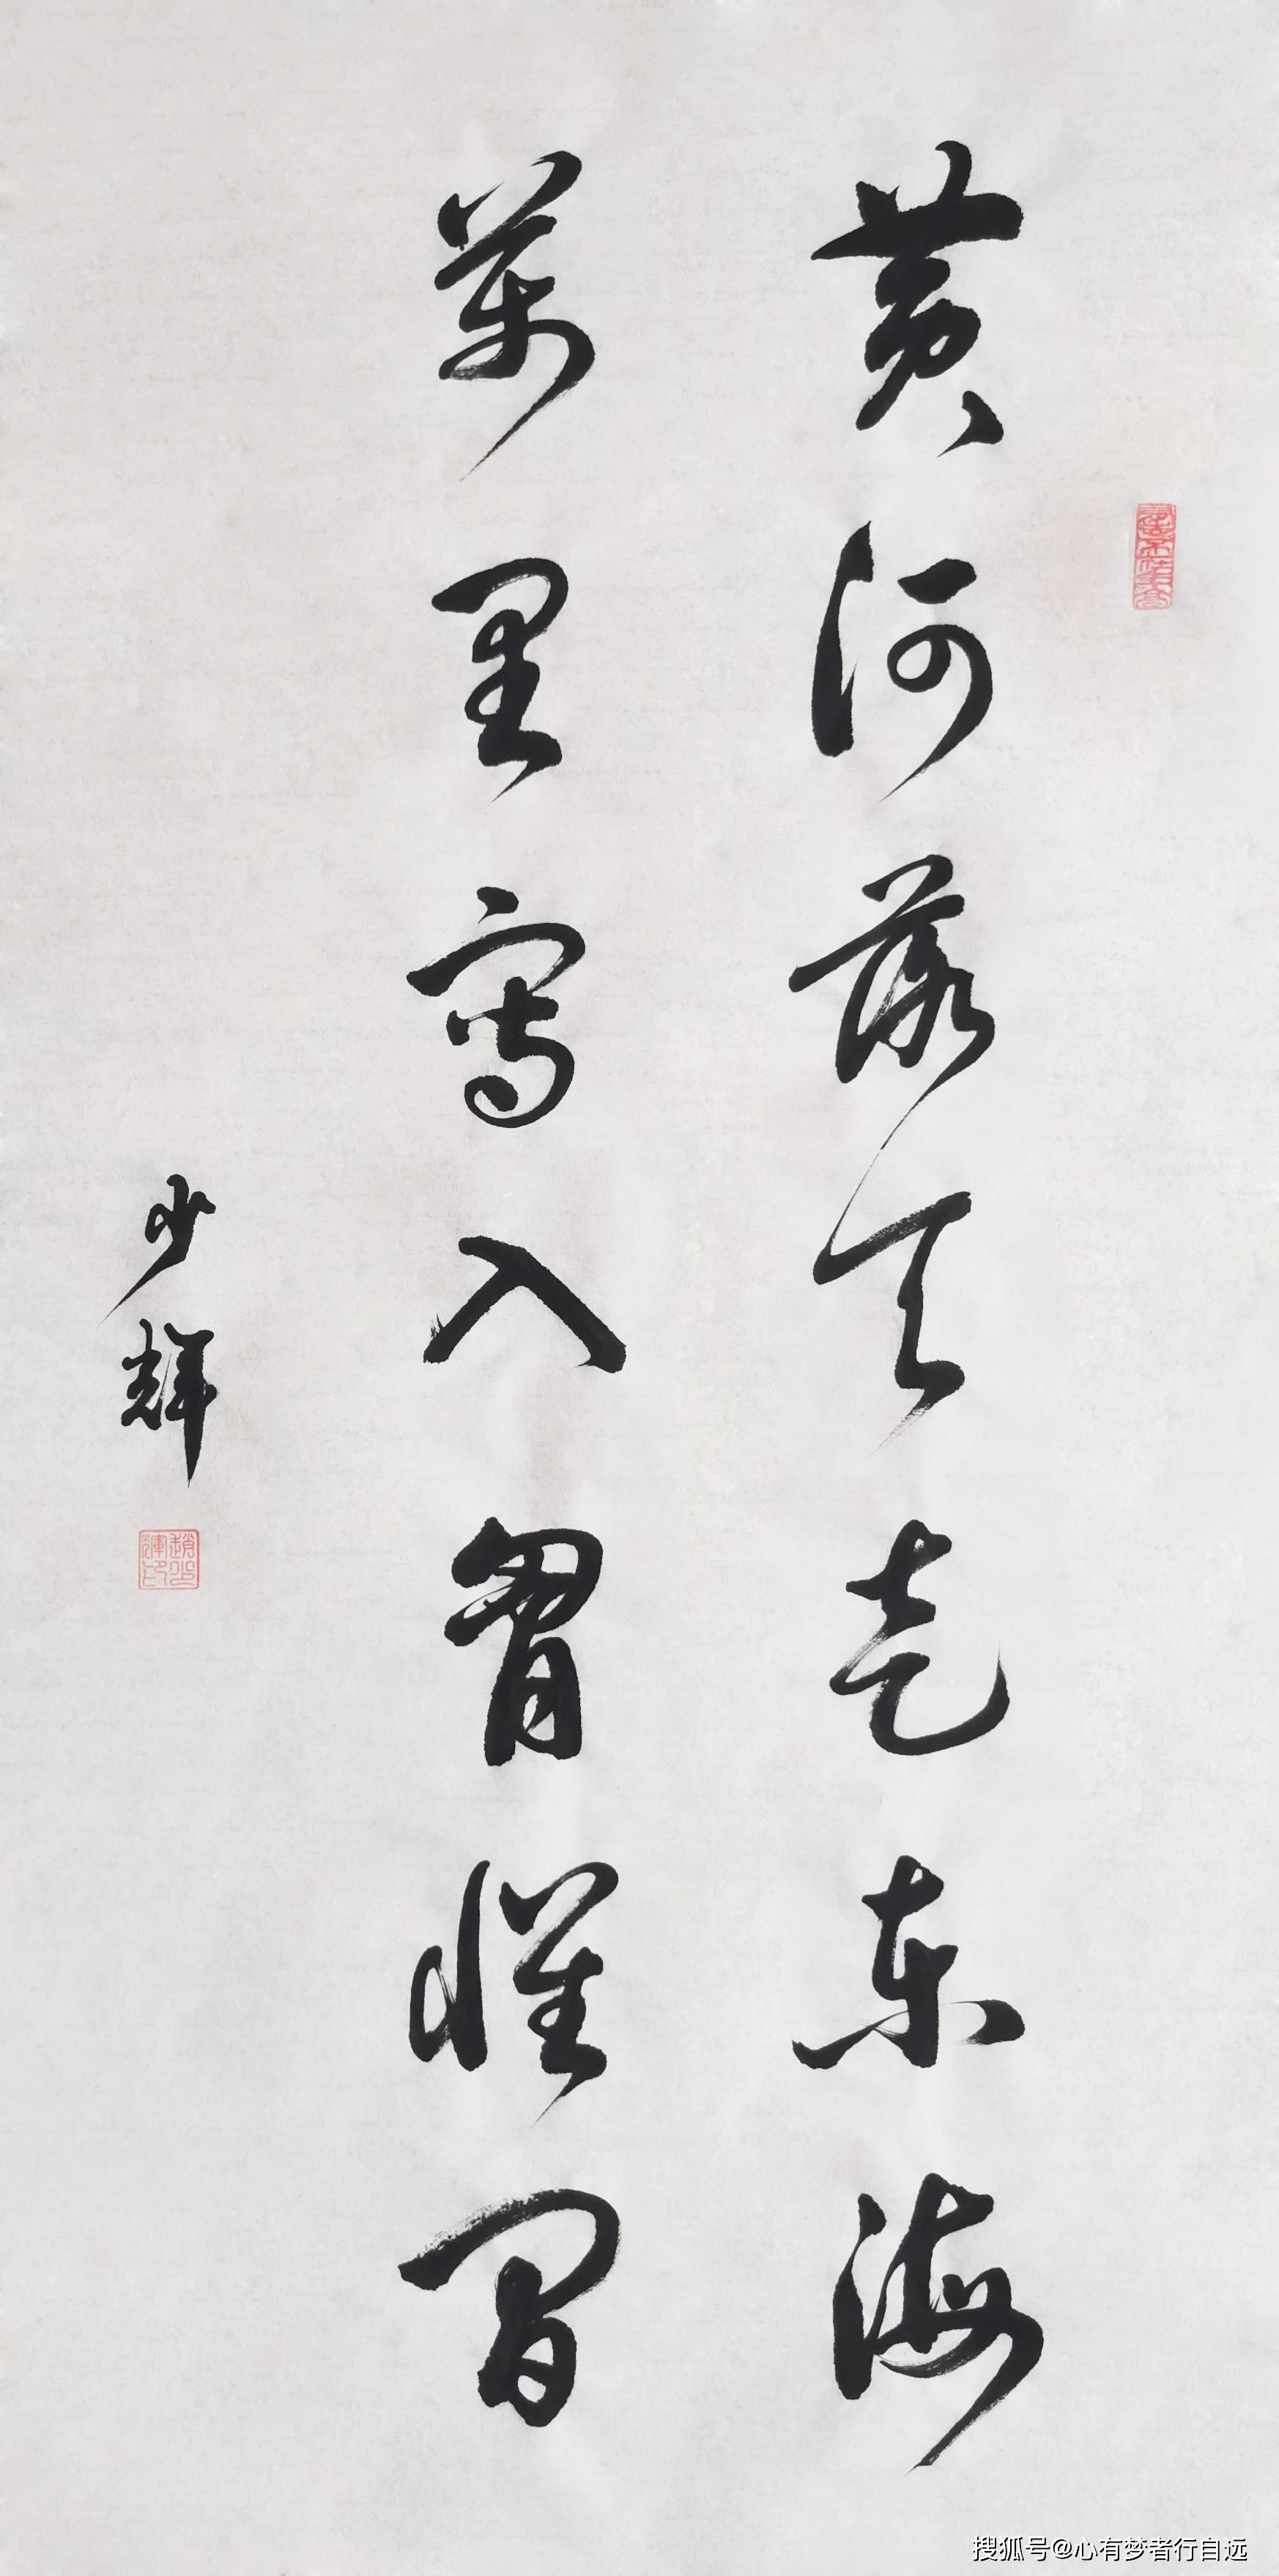 黄河落天走东海
万里写入胸怀间
少辉
赵少辉印
搜狐号@心有梦者行自远